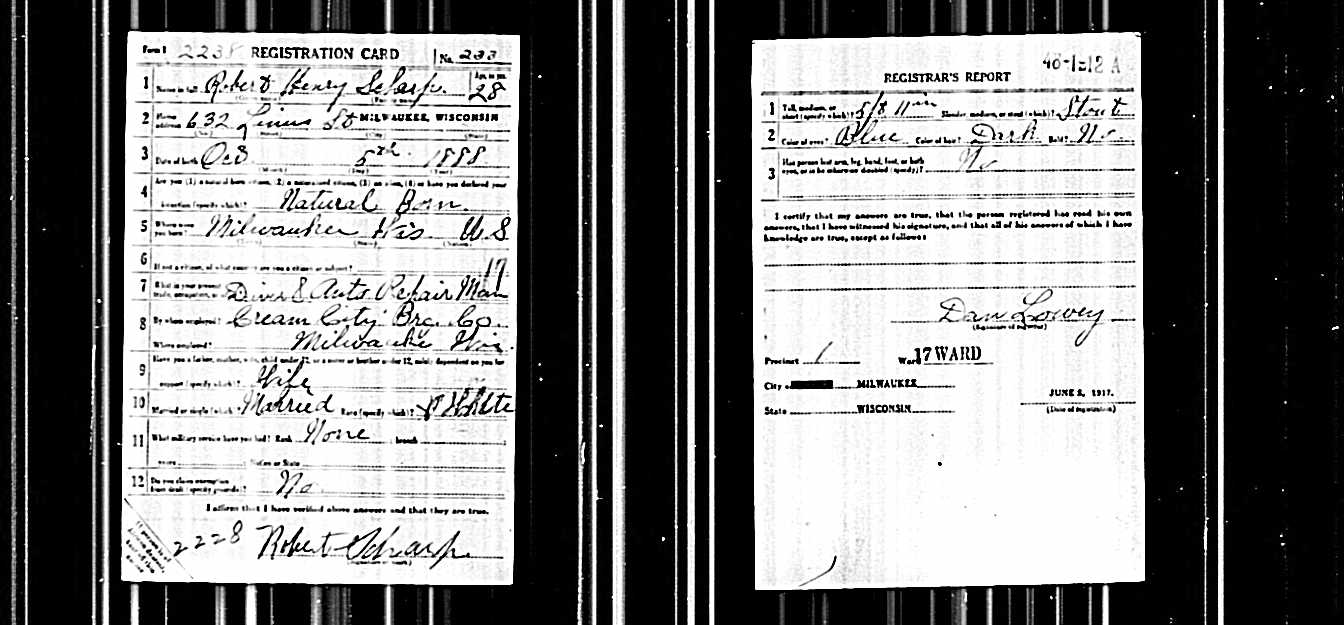 Form 1 2238 REGISTRATION CARD No. 233
1 Name in full Robert Henry Scharp Age, in yrs. 28
2 Home address 632 Linus St MILWAUKEE, WISCONSIN
3 Date of birth Oct 5th 1888
(Month) (Day) (Year)
4 Are you (1) a natural born citizen, (2) a naturalized citizen, (3) an alien, (4) or have you declared your
intention (specify which)? Natural Born
5 Where were you born? Milwaukee Wis U S
6 If not a citizen, of what country are you a citizen or subject?
17
7 What is your present trade, occupation, or office? & Auto Repair Man
8 By whom employed? Cream City Bre. Co.
Where employed? Milwaukee Wis.
9 Have you a father, mother, wife, child under 12, or a sister or brother under 12, solely dependent on you for
support (specify which)? Wife
10 Married or single (which)? Married Race (specify which)? White
11 What military service have you had? Rank None branch
years Nation or State
12 Do you claim exemption from draft (specify grounds)? No.
I affirm that I have verified above answers and that they are true.
2228 Robert Scharp
REGISTRAR'S REPORT
1 Tall, medium, or short (specify which)? 5ft 11in Slender, medium, or stout (which)? Stout
2 Color of eyes? Blue Color of hair? Dark Bald? No.
3 Has person lost arm, leg, hand, foot, or both eyes, or is he otherwise disabled (specify)? No
I certify that my answers are true, that the person registered has read his own
answers, that I have witnessed his signature, and that all of his answers of which I have
knowledge are true, except as follows:
Dan Lowey
(Signature of registrar)
Precinct 1 Ward 17 WARD
City MILWAUKEE
JUNE 5, 1917.
State WISCONSIN (Date of registration)